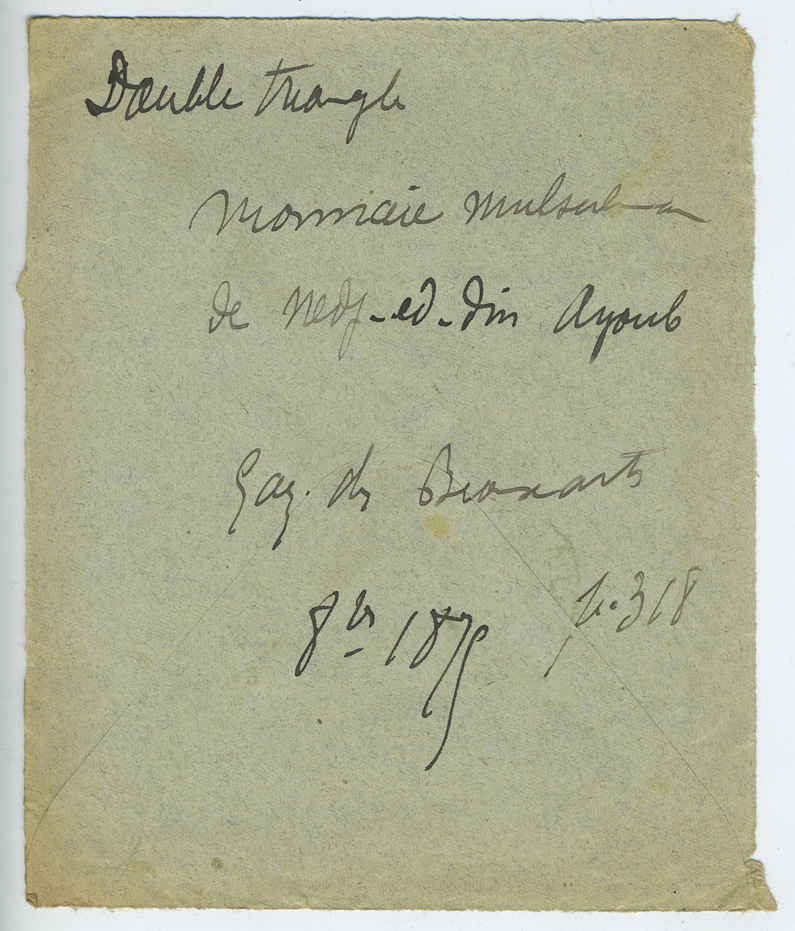 Double triangle
Monnaie mulsulman
de Nedj-ed-din Ayoub
Gaz. des Beaux arts
8bre 1875
, p. 318